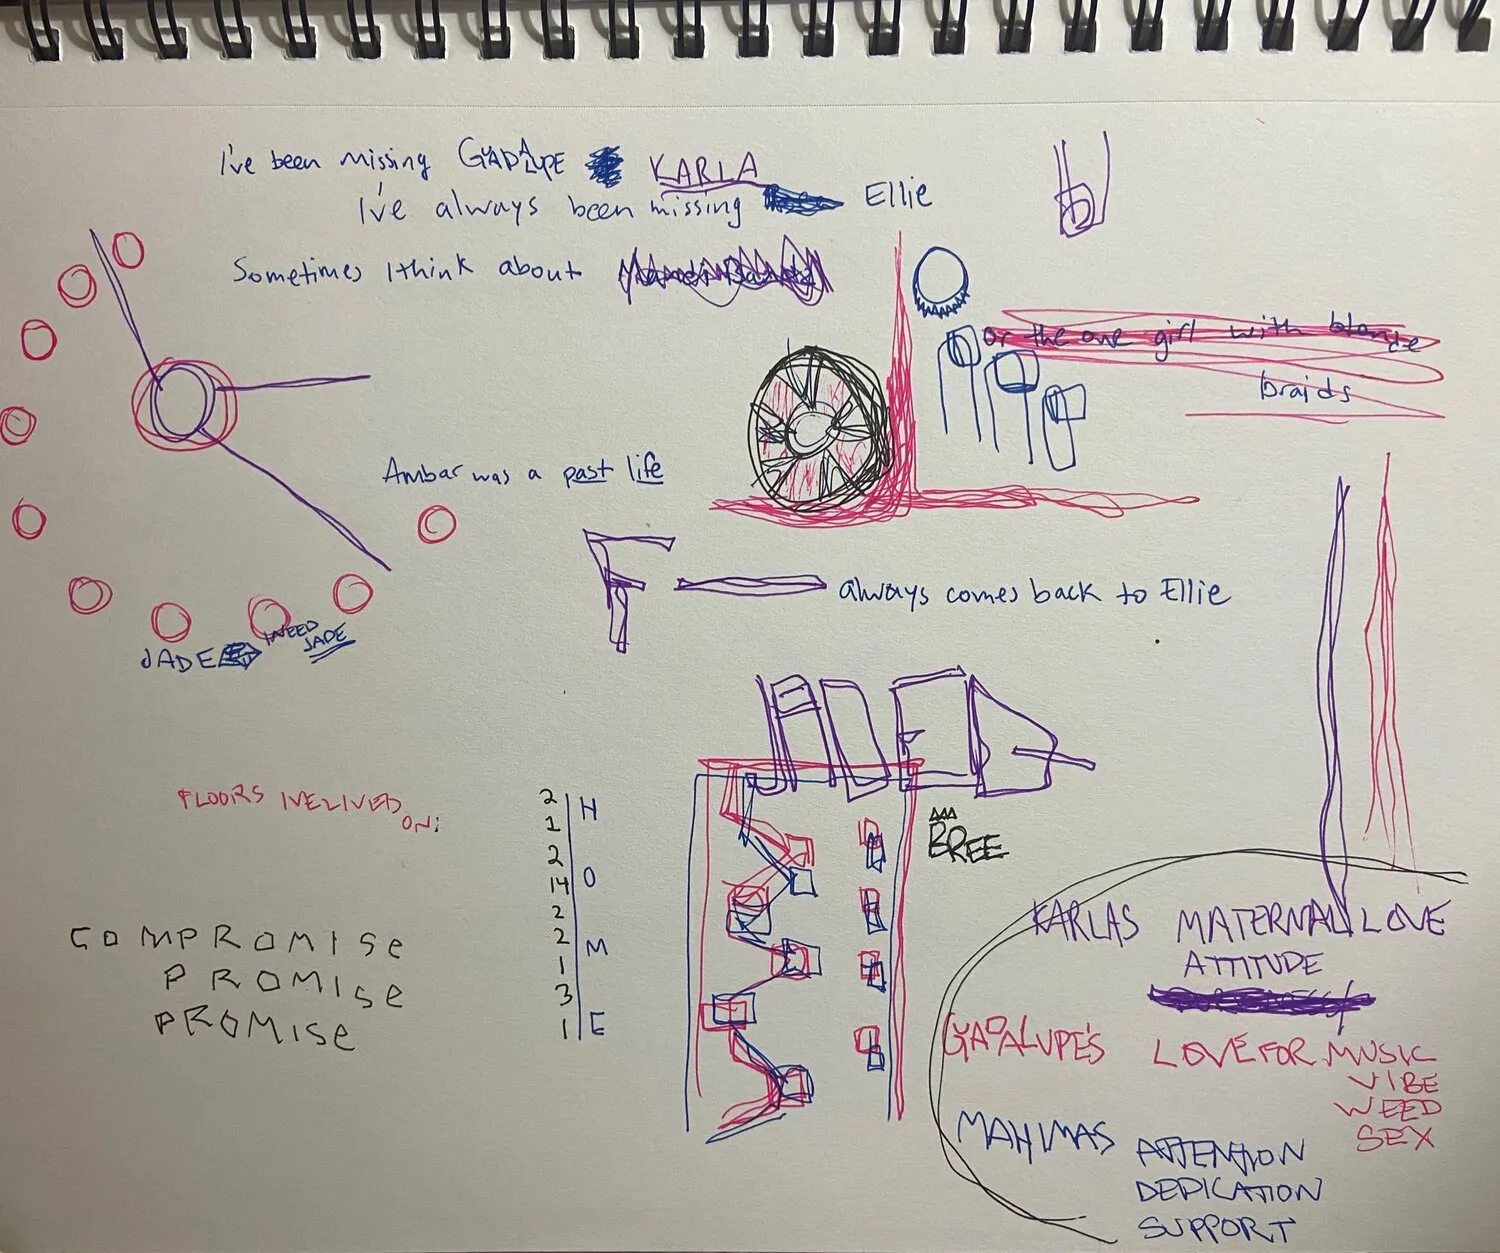 I've been missing GUADALUPE KARLA
I've always been missing Ellie
Sometimes I think about
or the one girl with blonde
braids
Ambar was a past life
F
always comes back to Ellie
JADE
I NEED
JADE
BREE
FLOORS IVE LIVED
ON:
2
1
2
14
2
2
1
3
1
H
O
M
E
COMPROMISE
PROMISE
PROMISE
KARLAS MATERNAL LOVE
ATTITUDE
GUADALUPE'S LOVE FOR MUSIC
VIBE
WEED
SEX
MAHIMAS ATTENTION
DEDICATION
SUPPORT